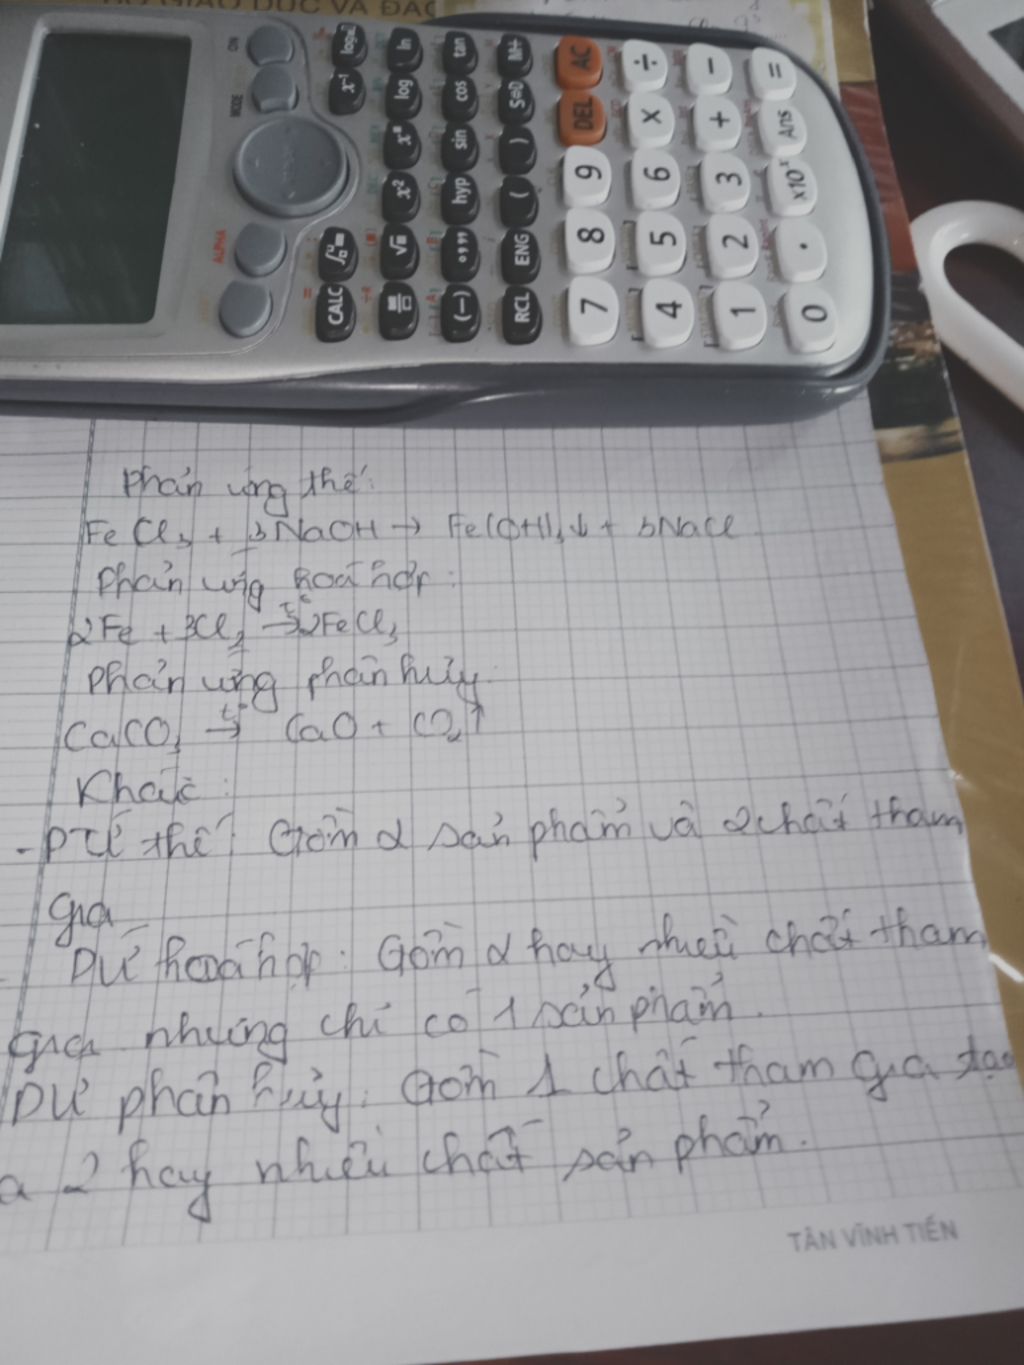 BỘ GIÁO DỤC VÀ ĐÀO
ON
MODE
ALPHA
x⁻¹ logₐ
CALC
x² log ln
√ xⁿ
(−) °,,, hyp sin cos tan
RCL ENG ( ) S⇔D M+
7 8 9 DEL AC
4 5 6 × ÷
1 2 3 + −
0 . ×10ˣ Ans =
Phản ứng thế:
FeCl₃ + 3NaOH → Fe(OH)₃↓ + 3NaCl
Phản ứng hoá hợp:
2Fe + 3Cl₂ →t° 2FeCl₃
Phản ứng phân hủy
CaCO₃ →t° CaO + CO₂↑
Khác:
- PƯ thế: Gồm 2 sản phẩm và 2 chất tham
gia
PƯ hoá hợp: Gồm 2 hay nhiều chất tham
gia nhưng chỉ có 1 sản phẩm.
PƯ phân hủy: Gồm 1 chất tham gia tạo
a 2 hay nhiều chất sản phẩm.
TÂN VĨNH TIẾN